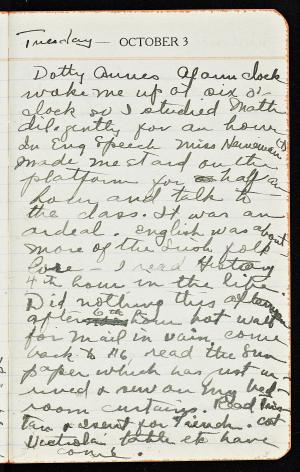 Tuesday — OCTOBER 3
Dotty Annes Alarm clock
woke me up at six o'
clock so I studied Math
diligently for an hour
In Eng Speech Miss
made me stand on the
platform for half an
hour and talk to
the class. It was an
ordeal. English was about
more of the Irish folk
lore — I read History
4th hour in the libe.
Did nothing this afternoon
after 6th hour but wait
for mail in vain, come
back to 116, read the Sun
paper which has just arr
ived & sew on my bed-
room curtains. Read
for French.
Victrola table etc have
come.